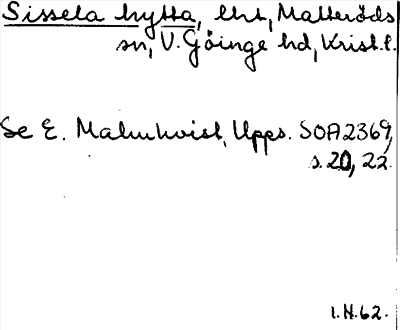 Sissela hytta, lht, Matteröds
sn, V. Göinge hd, Krist. l.
Se E. Malmkvist, Upps. SOA 2369,
s. 20, 22.
1.H.62.